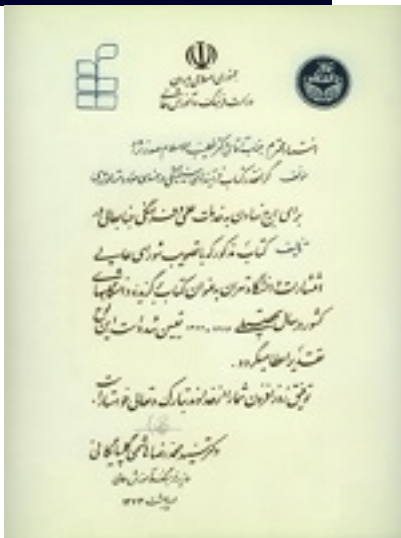 جمهوری اسلامی ایران
وزارت فرهنگ و آموزش عالی
استاد محترم جناب آقای دکتر
مولف گرانقدر کتاب
برای ارج نهادن به خدمات علمی و فرهنگی جنابعالی در
تألیف کتاب مذکور که با تصویب شورای عالی
انتشارات دانشگاه تهران به عنوان کتاب برگزیده دانشگاههای
کشور در سال تعیین شده است این لوح
تقدیر اعطا میگردد.
توفیق روزافزون شما را از خداوند تبارک و تعالی خواستارم.
دکتر سید محمدرضا هاشمی گلپایگانی
وزیر فرهنگ و آموزش عالی
۱۳۷۳